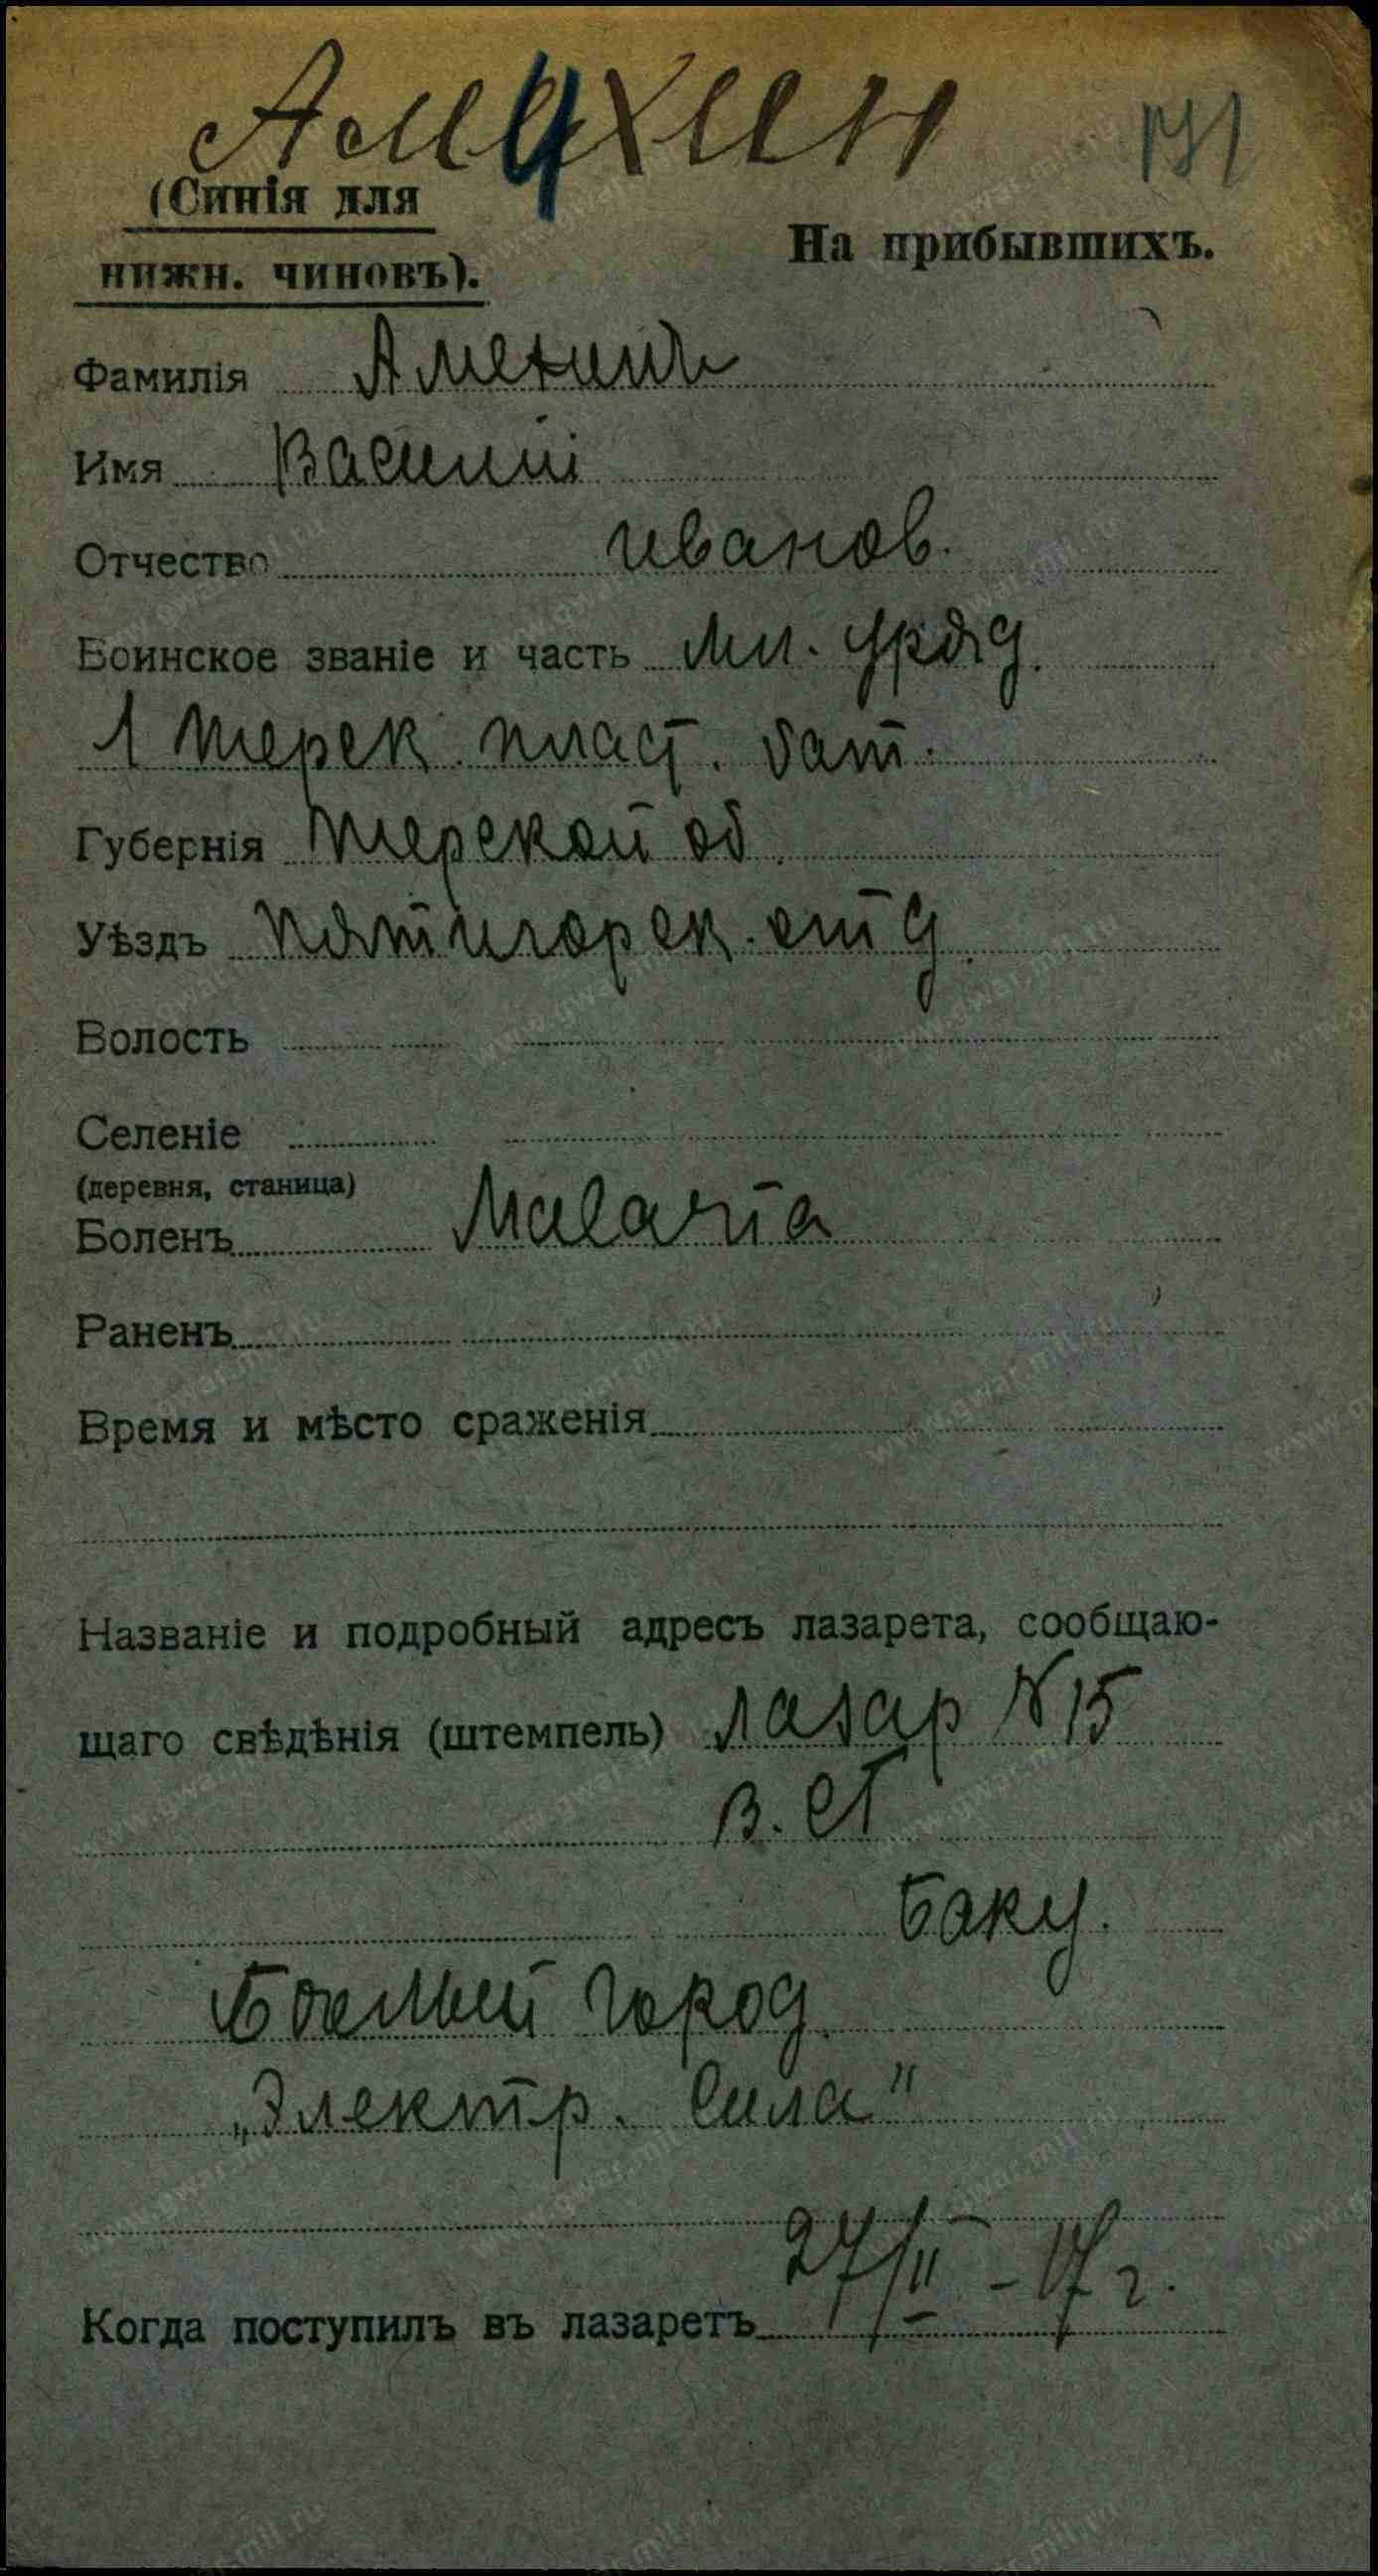 Амихин 171
(Синія для
нижн. чиновъ).
На прибывшихъ.
Фамилія Амехинъ
Имя Василій
Отчество Иванов.
Воинское званіе и часть Мл. уряд.
1 Терек. пласт. бат.
Губернія Терской об.
Уѣздъ Пятигорск. отд.
Волость
Селеніе
(деревня, станица)
Боленъ Malaria
Раненъ
Время и мѣсто сраженія
Названіе и подробный адресъ лазарета, сообщаю-
щаго свѣдѣнія (штемпель) Лазар № 15
В. С. Г.
Баку.
город
„Электр. Сила"
Когда поступилъ въ лазаретъ 27/II - 17 г.